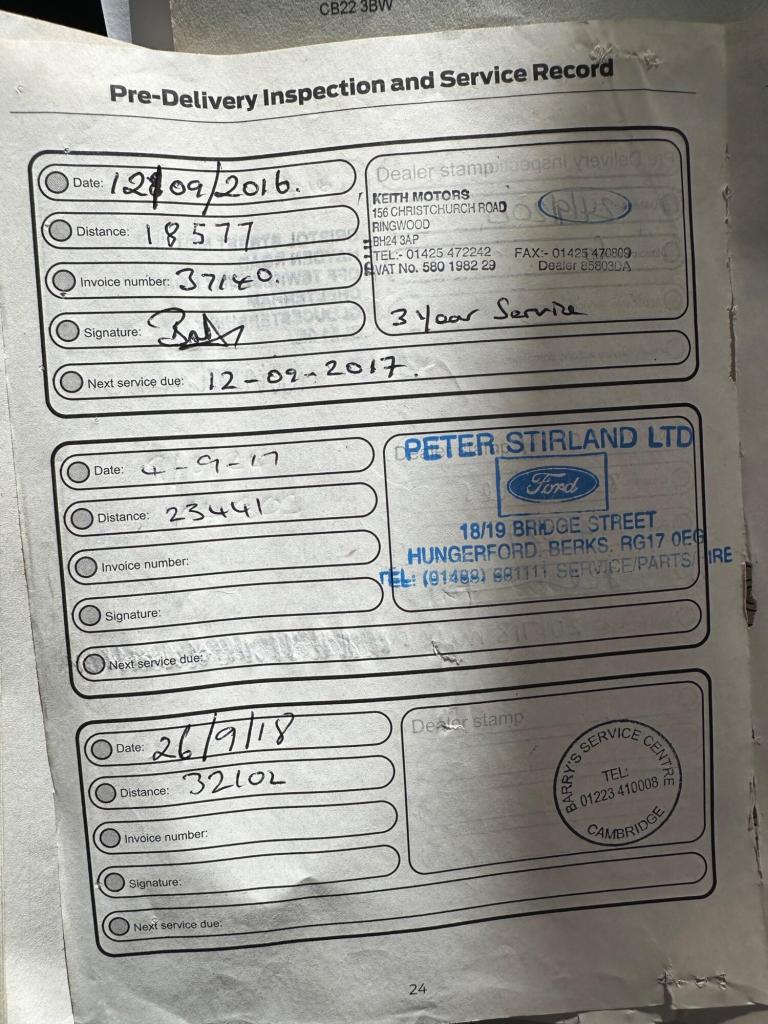 CB22 3BW
Pre-Delivery Inspection and Service Record
Date: 12/09/2016.
Distance: 18577
Invoice number: 37140.
Signature:
Next service due: 12-09-2017.
Dealer stamp
KEITH MOTORS
156 CHRISTCHURCH ROAD
RINGWOOD
BH24 3AP
TEL:- 01425 472242 FAX:- 01425 470809
VAT No. 580 1982 29 Dealer 85803DA
3 Year Service
Date: 4-9-17
Distance: 23441
Invoice number:
Signature:
Next service due:
PETER STIRLAND LTD
Ford
18/19 BRIDGE STREET
HUNGERFORD. BERKS. RG17 0EG
TEL: (01488) 681111 SERVICE/PARTS/HIRE
Date: 26/9/18
Distance: 32102
Invoice number:
Signature:
Next service due:
Dealer stamp
BARRY'S SERVICE CENTRE
TEL:
01223 410008
CAMBRIDGE
24